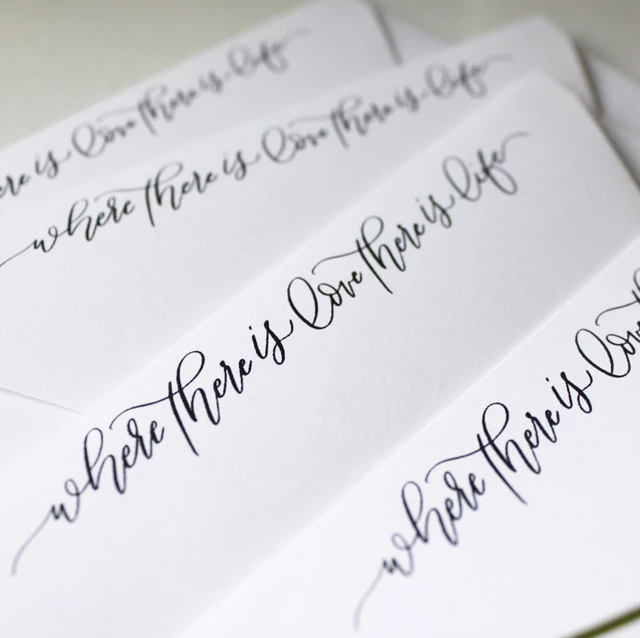 ere is love there is life
where there is love there is life
where there is love there is life
where there is love